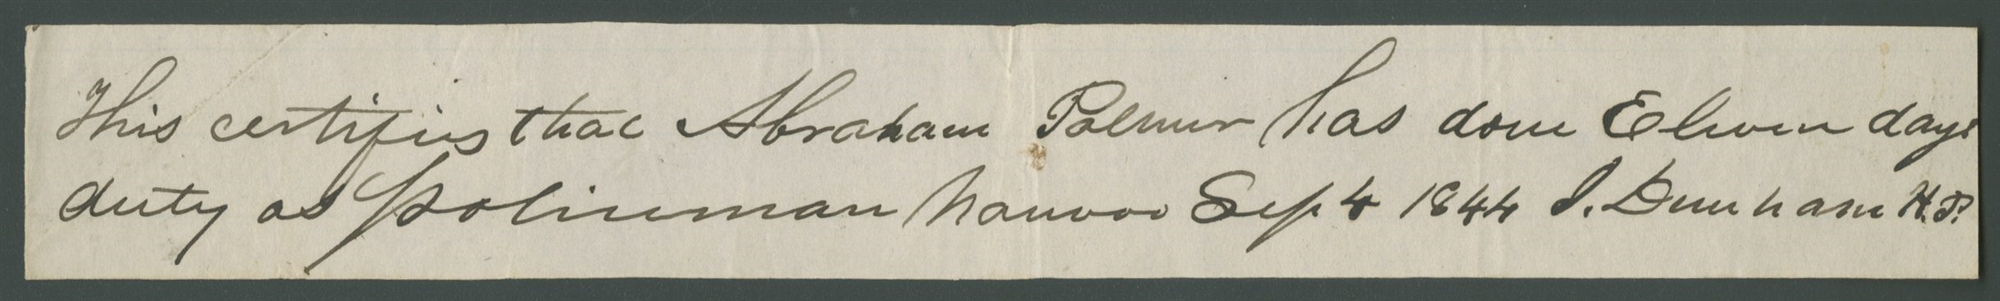 This certifies that Abraham Palmer has done Eleven days
duty as policeman Nauvoo Sep 4 1844 J. Dunham H.P.